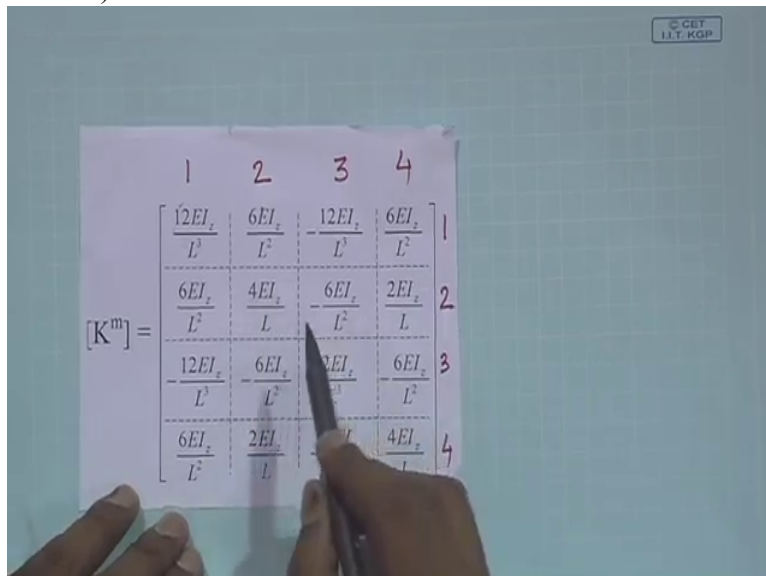 © CET
I.I.T. KGP
1 2 3 4
12EI_z/L³ 6EI_z/L² -12EI_z/L³ 6EI_z/L² 1
6EI_z/L² 4EI_z/L -6EI_z/L² 2EI_z/L 2
[K^m] =
-12EI_z/L³ -6EI_z/L² 2EI_z -6EI_z/L² 3
6EI_z/L² 2EI_z/L 4EI_z/L 4